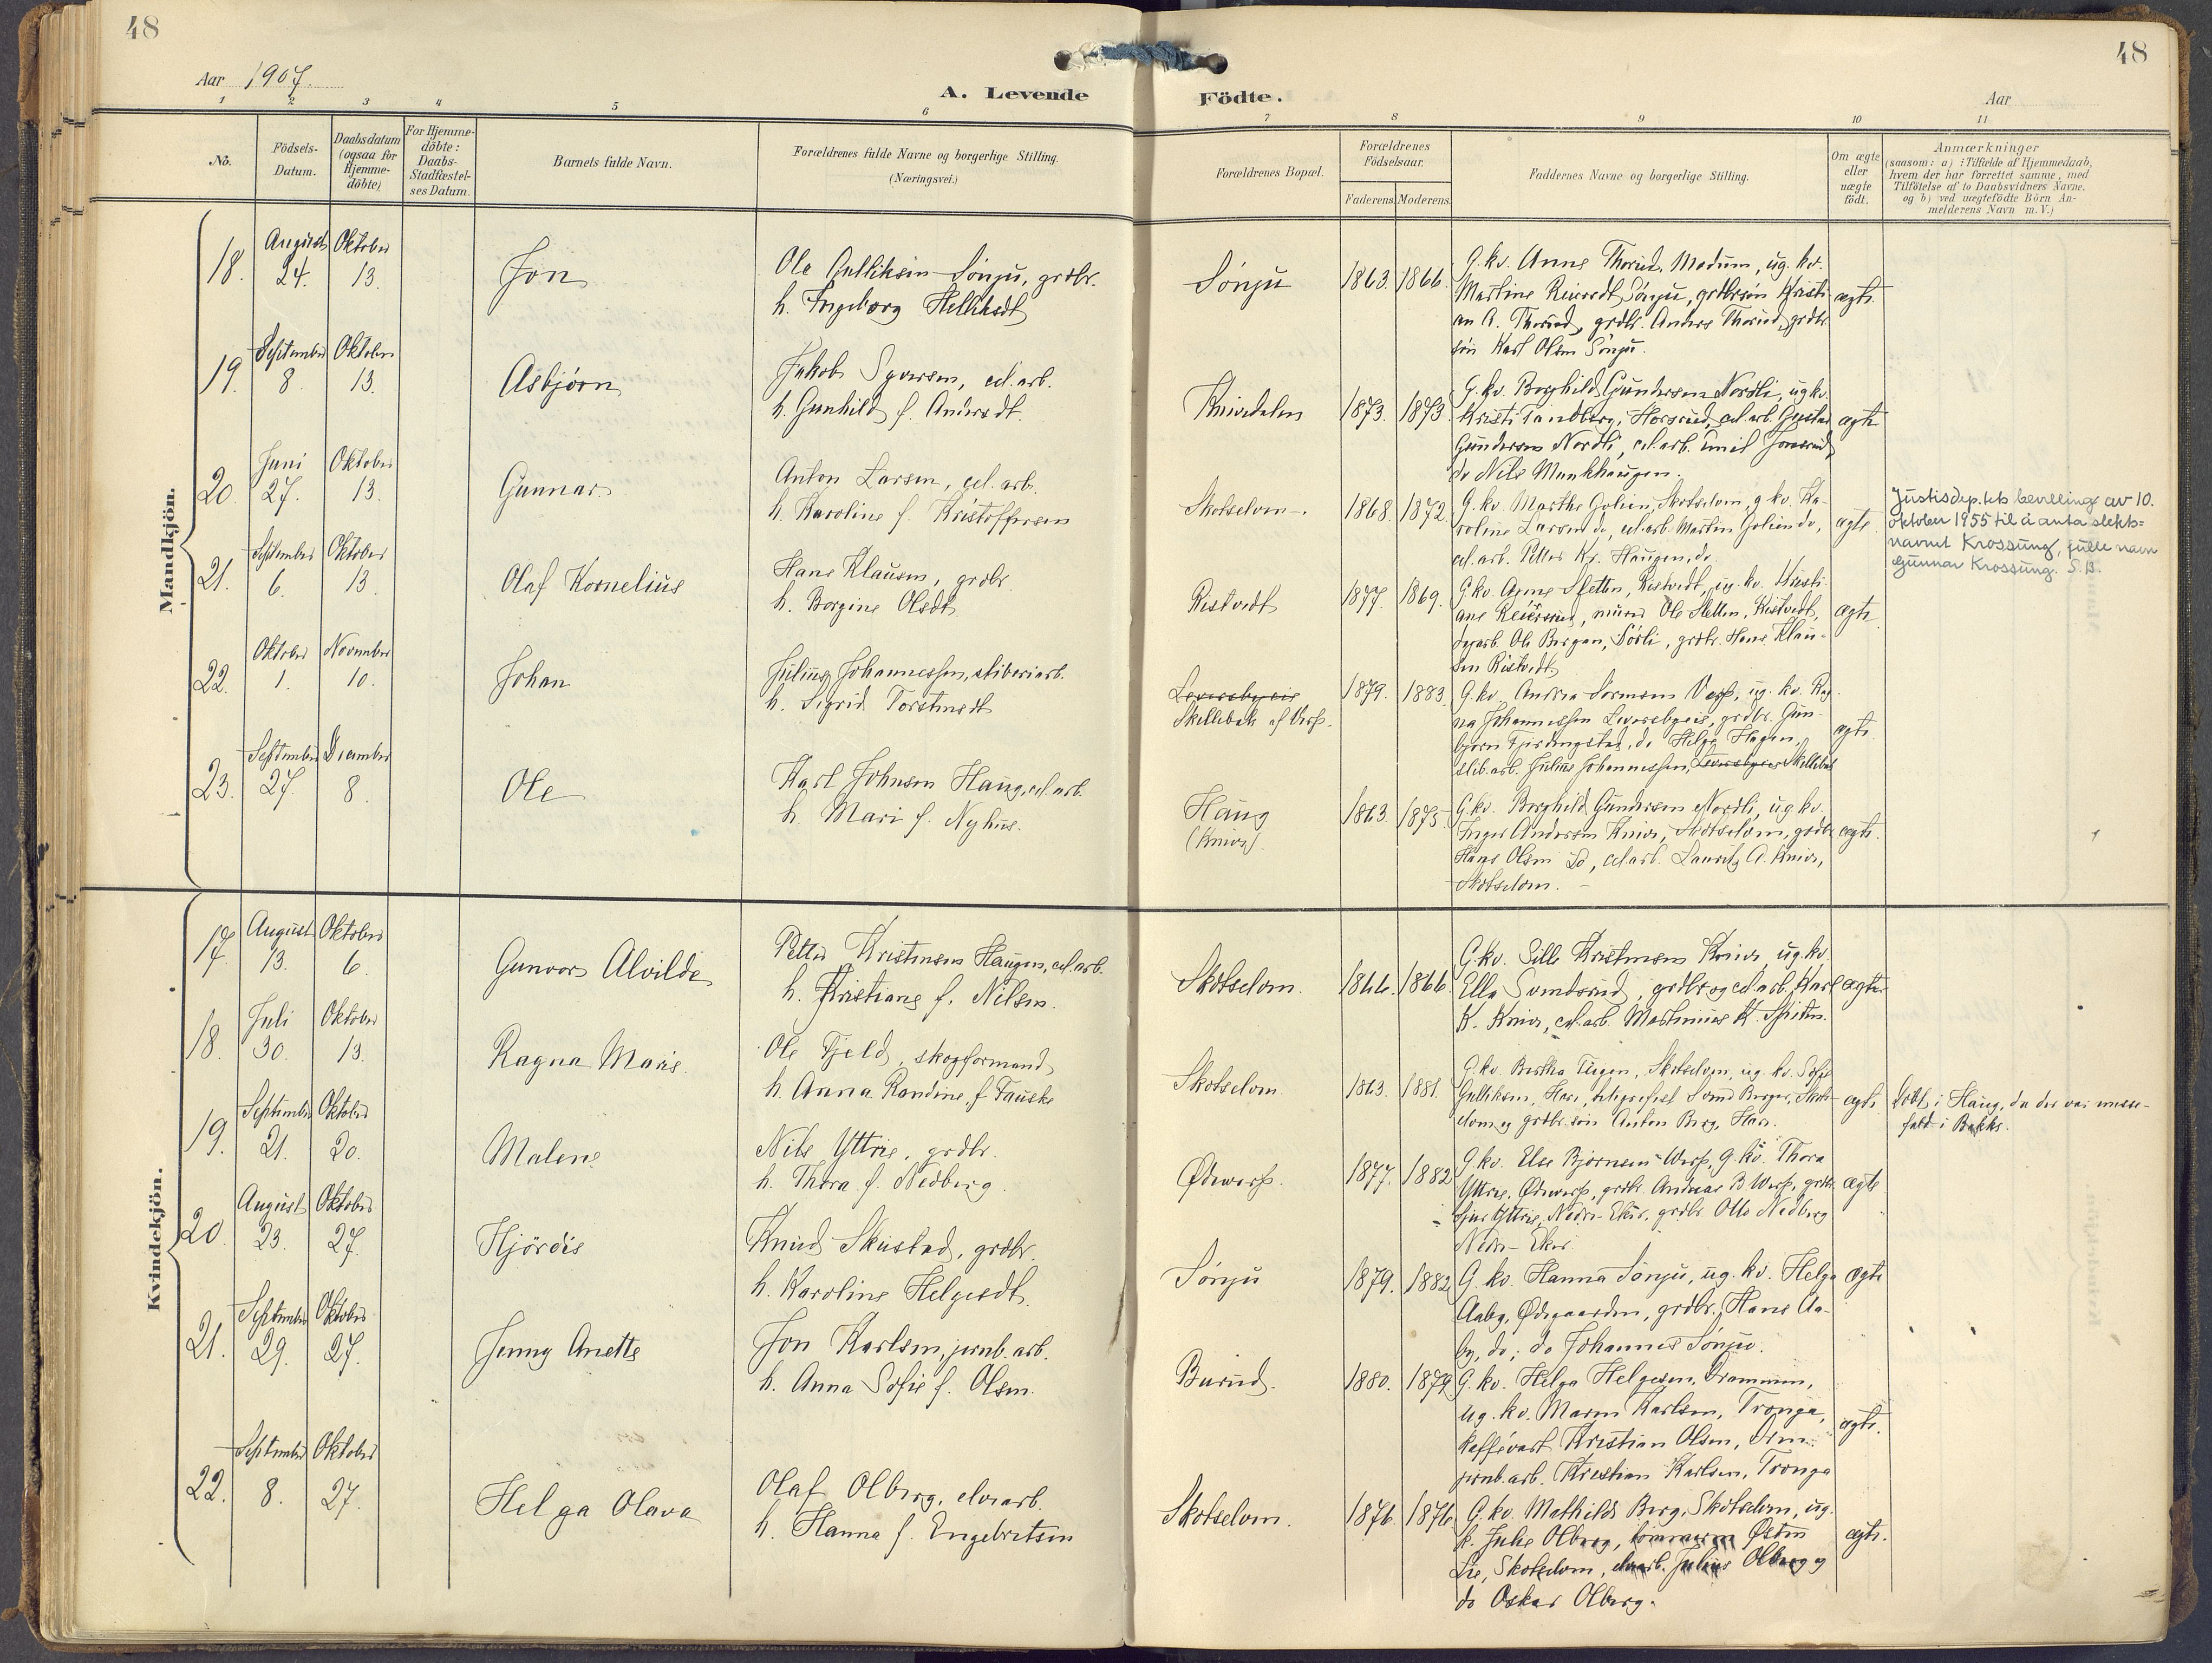 48
48
Aar 1907.
A. Levende Födte.
Aar
1 2 3 4 5 6 7 8 9 10 11
No.
Födsels-
Datum.
Daabsdatum
(ogsaa for
Hjemme-
döbte)
For Hjemme-
döbte:
Daabs-
Stadfæstel-
ses Datum.
Barnets fulde Navn.
Forældrenes fulde Navne og borgerlige Stilling.
(Næringsvei.)
Forældrenes Bopæl.
Forældrenes
Födselsaar.
Faderens. Moderens.
Faddernes Navne og borgerlige Stilling.
Om ægte
eller
uægte
født.
Anmærkninger
(saasom: a) i Tilfælde af Hjemmedaab,
hvem der har forrettet samme, med
Tilföielse af to Daabsvidners Navne,
og b) ved uægtefödte Börn An-
melderens Navn m. V.)
Mandkjön.
18. August 24. Oktober 13. Jon
Ole Gulliksen Sønju, grdbr.
h. Ingeborg Helliksdt
Sønju 1863. 1866.
G. kv. Anne Thorud, Modum, ug. kv.
Martine Reiersdt Sønju, grdbrsøn Kristi-
an A. Thorud, grdbr. Anders Thorud, grdbr.
søn Karl Olsen Sønju.
ægte
19. September 8. Oktober 13. Asbjørn
Jakob Syversen, cel. arb.
h. Gunhild f. Andersdt.
Knivedalen 1873. 1873.
G. kv. Borghild Gundersen Nordli, ug kv.
Kristi Tandberg, Horsrud, cel. arb. Gustav
Gundersen Nordli, cel. arb. Emil
do Nils Munkhaugen.
ægte
20. Juni 27. Oktober 13. Gunnar
Anton Larsen, cel. arb.
h. Karoline f. Kristoffersen
Skotselven. 1868. 1872.
G. kv Marthe Golien, Skotselven, g kv. Ka-
roline Larsen do, cel. arb Martin Golien do,
cel. arb. Petter Kr. Haugen, do.
ægte
Justisdep.tets bevilling av 10.
oktober 1955 til å anta slekts-
navnet Krossung, fulle navn
Gunnar Krossung. S.B.
21. September 6. Oktober 13. Olaf Kornelius
Hans Klausen, grdbr.
h. Borgine Olsdt.
Ristvedt 1877. 1869.
G. kv. Sletten, Ristvedt, ug. kv. Kristi-
ane Reiersrud, murer Ole Sletten, Ristvedt,
dagarb. Ole Bergan, Sørli, grdbr. Hans Klau-
sen Ristvedt
ægte
22. Oktober 1. November 10. Johan
Julius Johannessen, sliberiarb.
h. Sigrid Torstensdt
Leversbyeie
Skillebæk af Verp. 1879. 1883.
G. kv. Andrea Verp, ug. kv. Rag-
na Johannessen Leversbyeie, grdbr. Gun-
bjørn Fjerdingstad, do Helge Hagen,
slib. arb. Julius Johannessen, Leversbyeie Skillebæk
ægte
23. September 27. December 8. Ole
Karl Johnsen Haug, cel. arb.
h. Mari f. Nyhus.
Haug
(Kniv). 1863. 1875.
G. kv. Borghild Gundersen Nordli, ug kv.
Inger Andersen Kniv, Skotselven, grdbr
Hans Olsen do, cel. arb. Lauritz A. Kniv,
Skotselven.
ægte.
Kvindekjön.
17. August 13. Oktober 6. Gunvor Alvilde
Petter Kristensen Haugen, cel. arb.
h. Kristiane f. Nilsen.
Skotselven. 1866. 1866.
G. kv. Sille Kristensen Kniv, ug. kv.
Ella Svendsrud, grdbr og cel. arb. Karl
K. Kniv, cel. arb. Martinius K.
ægte
18. Juli 30. Oktober 13. Ragna Marie.
Ole Fjeld, skogformand
h. Anna Randine f. Fauske
Skotselven 1863. 1881.
G. kv. Bertha Teigen, Skotselven, ug. kv. Sofie
Gulliksen, Hære, Svend Berger, Skots-
elven og grdbr. søn Anton Berg, Hære.
ægte
Døbt i Haug, da der var messe-
fald i Bakke.
19. September 21. Oktober 20. Malene
Nils Yttrie, grdbr.
h. Thora f. Nedberg
Ødeverp. 1877. 1882
G. kv. Else Bjørnsen Werp, G. kv. Thora
Yttrie, Ødeverp, grdbr. Andreas B Werp, grdbr.
Yttrie, Nedre-Eker, grdbr. Otto Nedberg
Nedre-Eker.
ægte
20. August 23. Oktober 27. Hjördis
Knud Skustad, grdbr.
h. Karoline Helgesdt.
Sønju 1879. 1882
G. kv. Hanna Sønju, ug. kv. Helga
Aaby, Ødegaarden, grdbr. Hans Aa-
by, do; do Johannes Sønju.
ægte
21. September 29. Oktober 27. Jenny Anette
Jon Karlsen, jernb. arb.
h. Anna Sofie f. Olsen.
Burud. 1880. 1879
G. kv. Helga Helgesen, Drammen,
ug. kv. Maren Karlsen, Tronga,
kaffévært Kristian Olsen, Drm.
jernb. arb. Kristian Karlsen, Tronga
ægte.
22. September 8. Oktober 27. Helga Olava
Olaf Olberg, elvearb.
h. Hanna f. Engebretsen
Skotselven. 1876. 1876
G. kv. Mathilde Berg, Skotselven, ug.
k. Julie Olberg, Østen
Lie, Skotselven, elvearb. Julius Olberg og
do Oskar Olberg.
ægte.